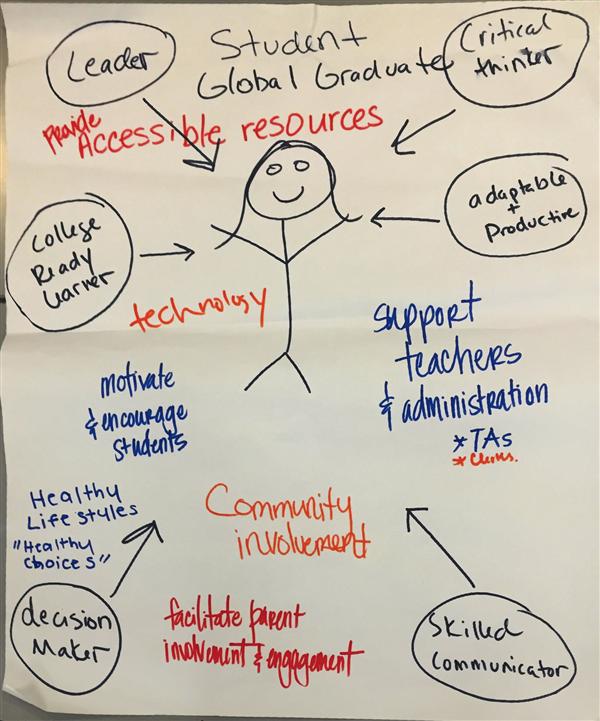 Student
Global Graduate
Leader
Critical
thinker
Provide
Accessible resources
adaptable
+
Productive
College
Ready
Learner
technology
support
teachers
& administration
*TAs
motivate
& encourage
students
Healthy
Life styles
"Healthy
Choices"
Community
involvement
decision
Maker
facilitate parent
involvement & engagement
Skilled
Communicator